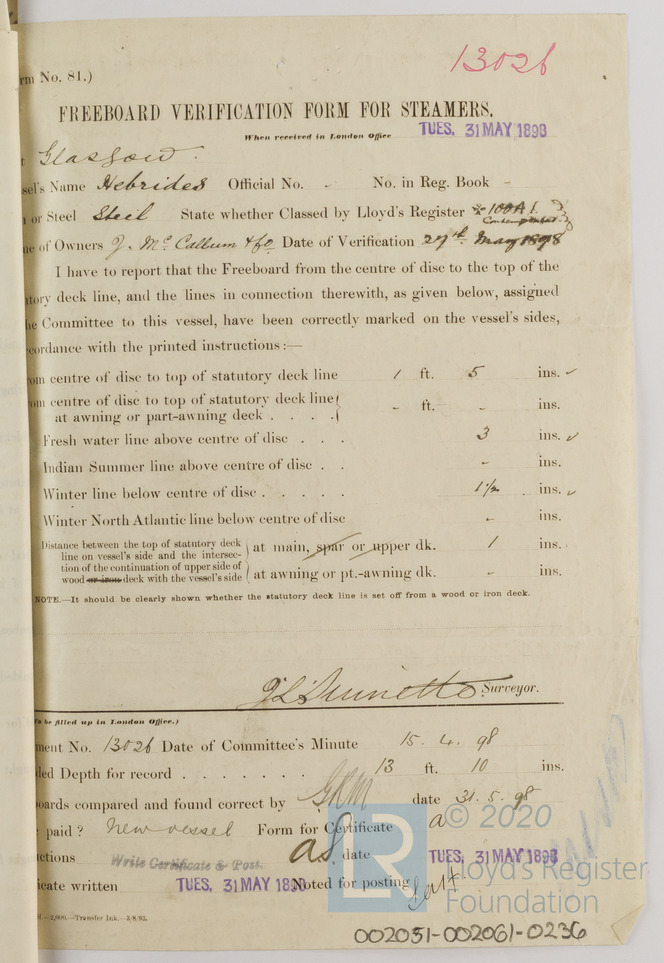 13026
rm No. 81.)
FREEBOARD VERIFICATION FORM FOR STEAMERS.
When received in London Office TUES. 31 MAY 1898
Glasgow.
sel's Name Hebrides Official No. - No. in Reg. Book -
or Steel Steel State whether Classed by Lloyd's Register 100A1
Contemplated
e of Owners J. McCallum & Co Date of Verification 29th May 1898
I have to report that the Freeboard from the centre of disc to the top of the
tory deck line, and the lines in connection therewith, as given below, assigned
he Committee to this vessel, have been correctly marked on the vessel's sides,
cordance with the printed instructions:—
om centre of disc to top of statutory deck line 1 ft. 5 ins. ✓
om centre of disc to top of statutory deck line
at awning or part-awning deck . . . . - ft. - ins.
Fresh water line above centre of disc . . . 3 ins. ✓
Indian Summer line above centre of disc . . - ins.
Winter line below centre of disc . . . . . 1½ ins. ✓
Winter North Atlantic line below centre of disc - ins.
Distance between the top of statutory deck
line on vessel's side and the intersec-
tion of the continuation of upper side of
wood or iron deck with the vessel's side
at main, spar or upper dk. 1 ins.
at awning or pt.-awning dk. - ins.
NOTE.—It should be clearly shown whether the statutory deck line is set off from a wood or iron deck.
Surveyor.
To be filled up in London Office.)
ment No. 13026 Date of Committee's Minute 15. 4. 98
ded Depth for record . . . . . . . 13 ft. 10 ins.
oards compared and found correct by date 31. 5. 98
paid? New vessel Form for Certificate
ctions Write Certificate & Post. date TUES. 31 MAY 1898
icate written TUES. 31 MAY 1898 Noted for posting
d.—2,000.—Transfer Ink.—3/8/95.
LR
© 2020
Lloyd's Register
Foundation
002051-002061-0236